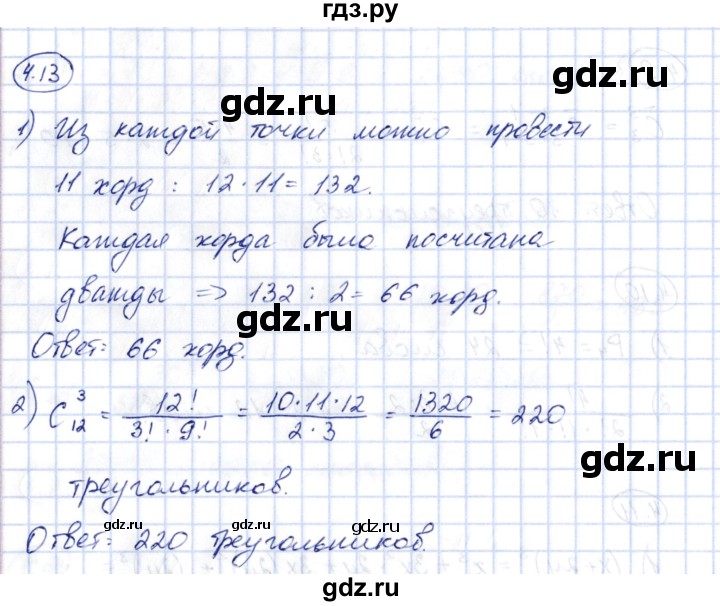 гдз.ру
4.13
gdz.ru
1) Из каждой точки можно провести
11 хорд : 12·11 = 132.
Каждая хорда была посчитана
дважды => 132 : 2 = 66 хорд.
gdz.ru
gdz.ru
Ответ: 66 хорд.
2) C₁₂³ = 12! / (3! · 9!) = 10·11·12 / (2·3) = 1320 / 6 = 220
gdz.ru
треугольников.
gdz.ru
gdz.ru
gdz.ru
Ответ: 220 треугольников.
gdz.ru